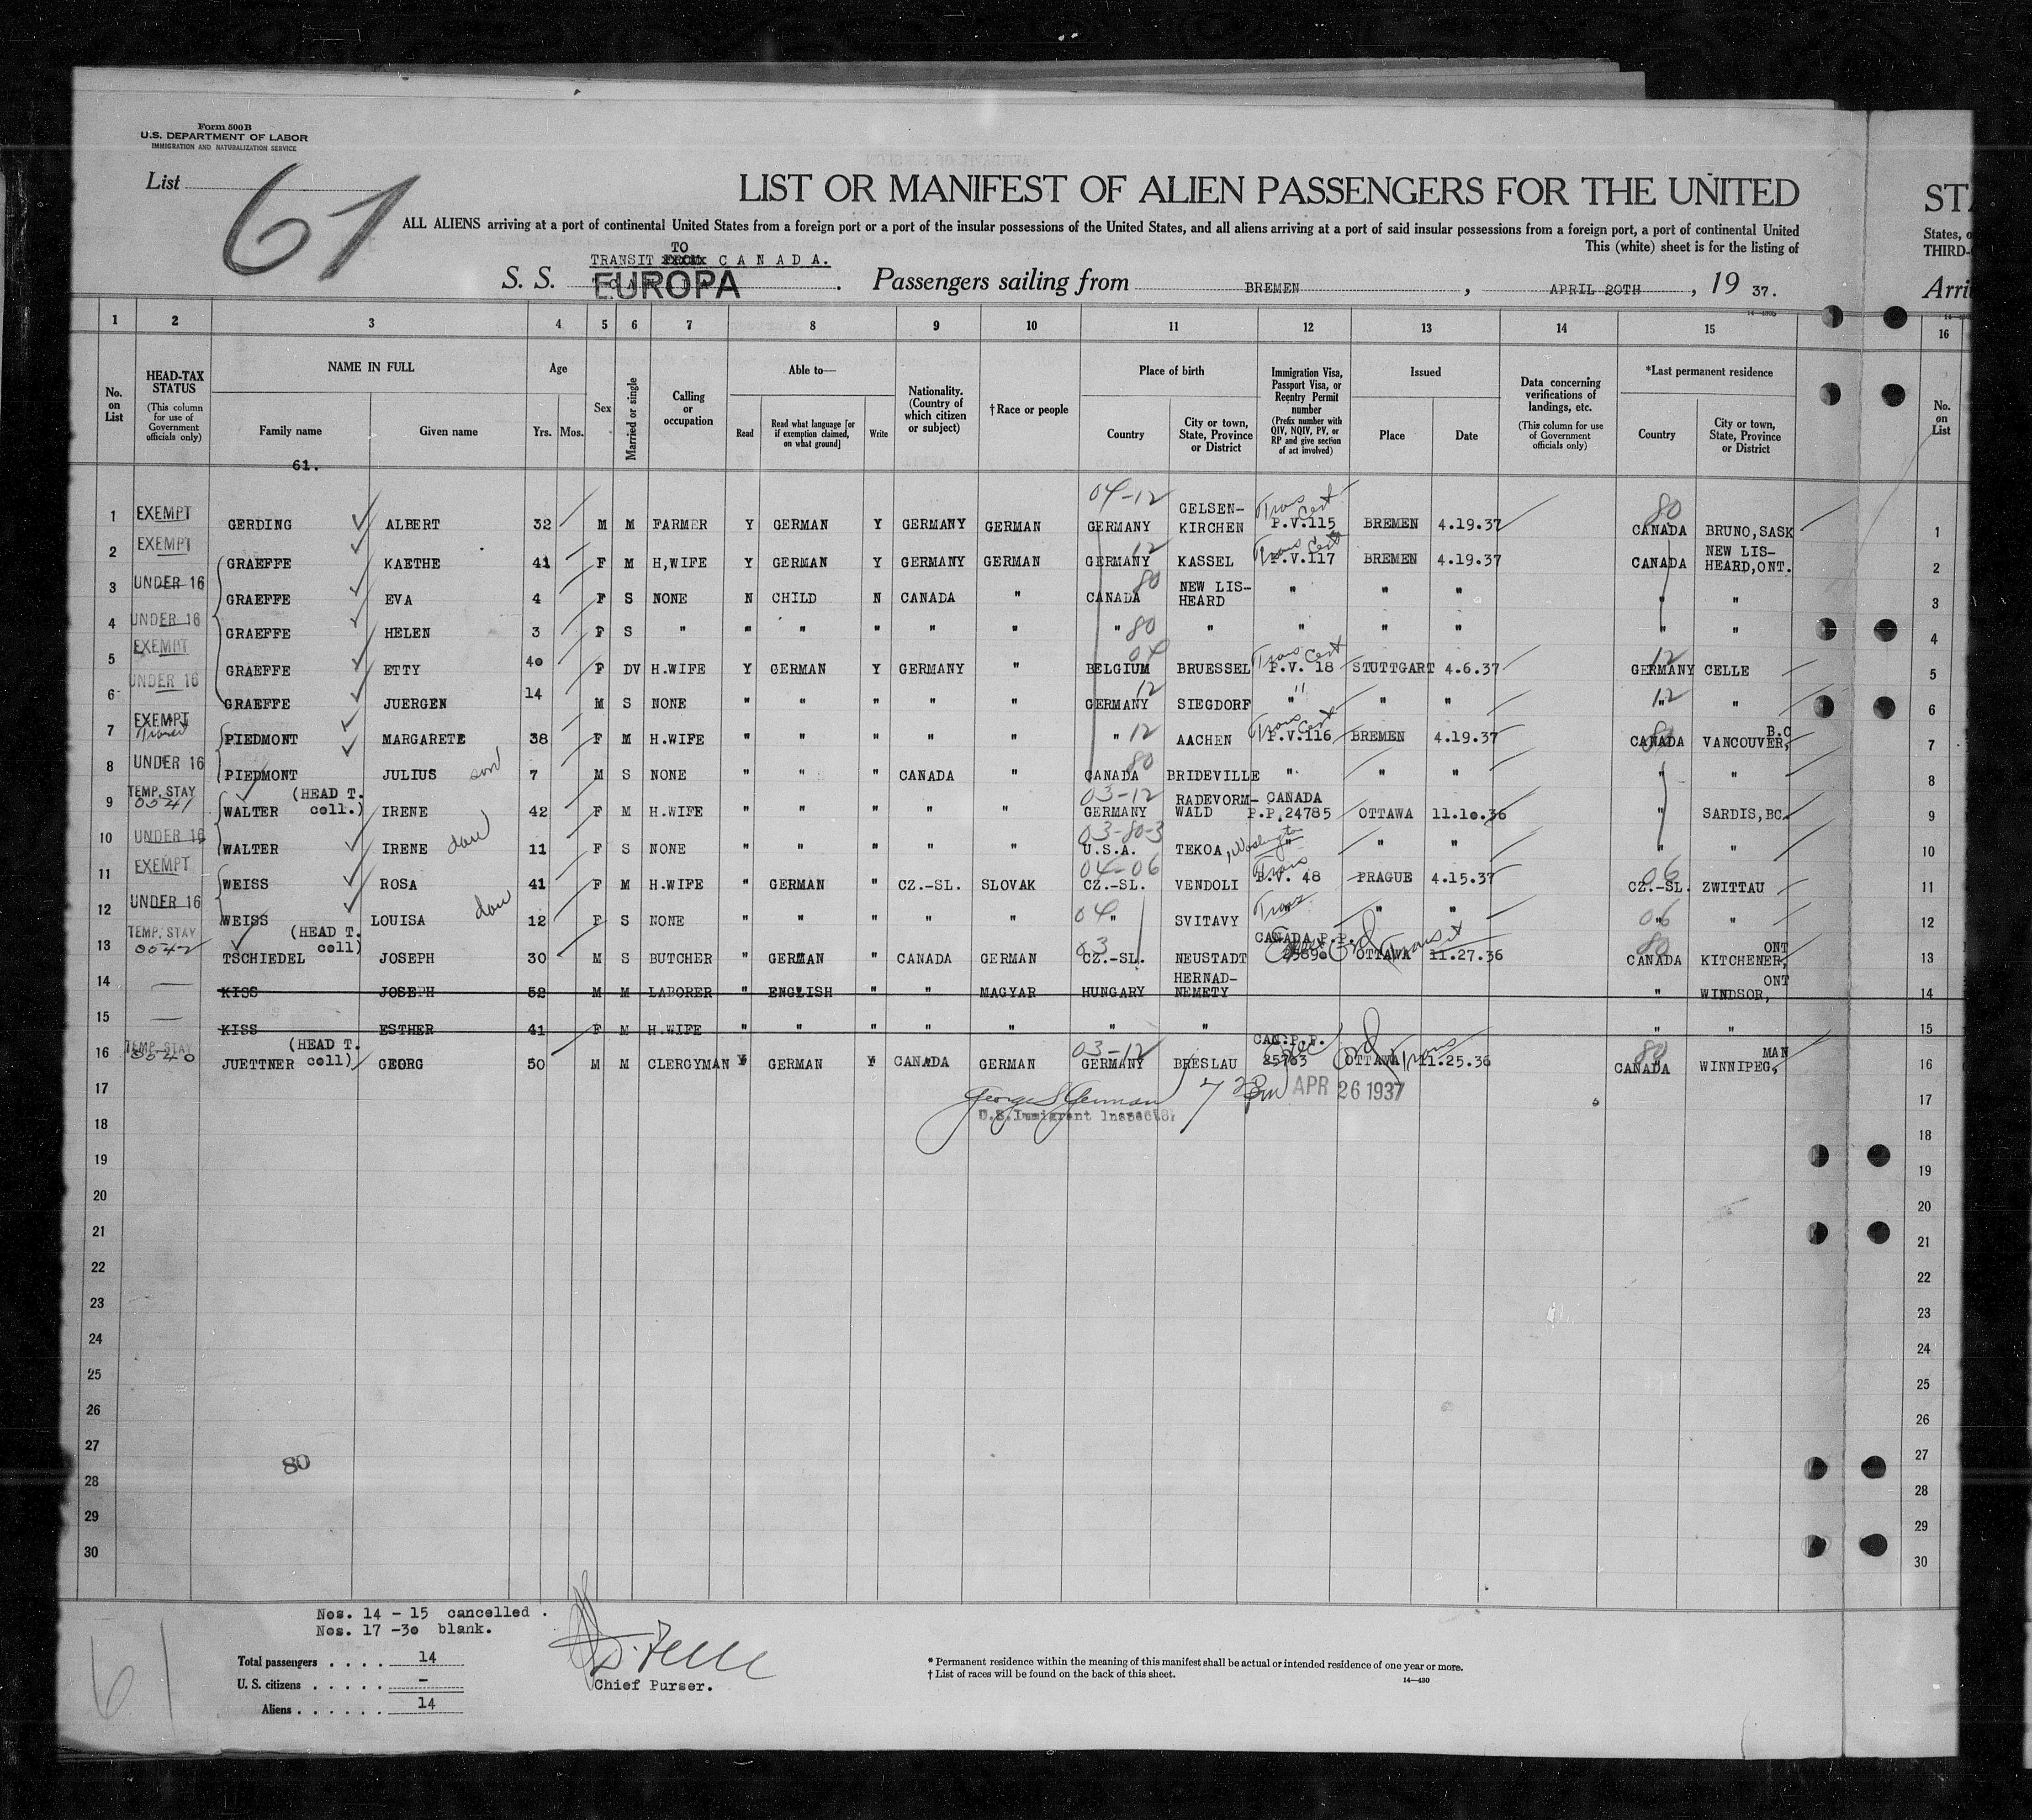 Form 500B
U.S. DEPARTMENT OF LABOR
IMMIGRATION AND NATURALIZATION SERVICE
List 61
LIST OR MANIFEST OF ALIEN PASSENGERS FOR THE UNITED
ST
ALL ALIENS arriving at a port of continental United States from a foreign port or a port of the insular possessions of the United States, and all aliens arriving at a port of said insular possessions from a foreign port, a port of continental United
States, o
This (white) sheet is for the listing of
THIRD-
TO
TRANSIT FROM CANADA.
S. S. EUROPA. Passengers sailing from BREMEN, APRIL 20TH, 19 37.
Arri
1 2 3 4 5 6 7 8 9 10 11 12 13 14 15 16
No. on List
HEAD-TAX STATUS
(This column for use of Government officials only)
NAME IN FULL
Family name Given name
Age
Yrs. Mos.
Sex
Married or single
Calling or occupation
Able to—
Read
Read what language [or if exemption claimed, on what ground]
Write
Nationality. (Country of which citizen or subject)
†Race or people
Place of birth
Country
City or town, State, Province or District
Immigration Visa, Passport Visa, or Reentry Permit number
(Prefix number with QIV, NQIV, PV, or RP and give section of act involved)
Issued
Place Date
Data concerning verifications of landings, etc.
(This column for use of Government officials only)
*Last permanent residence
Country
City or town, State, Province or District
No. on List
61.
1 EXEMPT GERDING ALBERT 32 M M FARMER Y GERMAN Y GERMANY GERMAN 04-12 GERMANY GELSEN-KIRCHEN Trans Cert P.V.115 BREMEN 4.19.37 80 CANADA BRUNO,SASK 1
2 EXEMPT GRAEFFE KAETHE 41 F M H,WIFE Y GERMAN Y GERMANY GERMAN GERMANY 12 KASSEL Trans Cert P.V.117 BREMEN 4.19.37 CANADA NEW LIS-HEARD,ONT. 2
3 UNDER 16 GRAEFFE EVA 4 F S NONE N CHILD N CANADA " CANADA 80 NEW LIS-HEARD " " " " " 3
4 UNDER 16 GRAEFFE HELEN 3 F S " " " " " " " 80 " " " " " " 4
5 EXEMPT GRAEFFE ETTY 40 F DV H.WIFE Y GERMAN Y GERMANY " 04 BELGIUM BRUESSEL Trans Cert P.V. 18 STUTTGART 4.6.37 12 GERMANY CELLE 5
6 UNDER 16 GRAEFFE JUERGEN 14 M S NONE " " " " " GERMANY 12 SIEGDORF " " " " 12 " " 6
7 EXEMPT Transit PIEDMONT MARGARETE 38 F M H.WIFE " " " " " " 12 AACHEN Trans Cert P.V.116 BREMEN 4.19.37 80 CANADA VANCOUVER, B.C 7
8 UNDER 16 PIEDMONT JULIUS son 7 M S NONE " " " CANADA " CANADA 80 BRIDEVILLE " " " " " 8
9 TEMP. STAY 0541 WALTER (HEAD T. coll.) IRENE 42 F M H.WIFE " " " " " 03-12 GERMANY RADEVORM-WALD CANADA P.P.24785 OTTAWA 11.10.36 " SARDIS,BC. 9
10 UNDER 16 WALTER IRENE dau 11 F S NONE " " " " " 03-80-3 U.S.A. TEKOA, Washington " " " " " 10
11 EXEMPT WEISS ROSA 41 F M H.WIFE " GERMAN " CZ.-SL. SLOVAK 04-06 CZ.-SL. VENDOLI Trans P.V. 48 PRAGUE 4.15.37 06 CZ.-SL. ZWITTAU 11
12 UNDER 16 WEISS LOUISA dau 12 F S NONE " " " " " 04 " SVITAVY Trans " " " 06 " " 12
13 TEMP. STAY 0542 TSCHIEDEL (HEAD T. coll) JOSEPH 30 M S BUTCHER " GERMAN " CANADA GERMAN 03 CZ.-SL. NEUSTADT CANADA P.P. OTTAWA Transit 11.27.36 80 CANADA KITCHENER, ONT 13
14 — KISS JOSEPH 52 M M LABORER " ENGLISH " " MAGYAR HUNGARY HERNAD-NEMETY " WINDSOR, ONT 14
15 — KISS ESTHER 41 F M H.WIFE " " " " " " " " " 15
16 TEMP. STAY 0540 JUETTNER (HEAD T. coll) GEORG 50 M M CLERGYMAN Y GERMAN Y CANADA GERMAN 03-12 GERMANY BRESLAU CAN.P.P. 25763 OTTAWA Trans 11.25.36 80 CANADA WINNIPEG, MAN 16
17 APR 26 1937 17
U.S. Immigrant Inspector
18 18
19 19
20 20
21 21
22 22
23 23
24 24
25 25
26 26
27 27
80
28 28
29 29
30 30
Nos. 14 - 15 cancelled.
Nos. 17 -30 blank.
Total passengers . . . . 14
U. S. citizens . . . . . -
Aliens . . . . . . 14
61
Chief Purser.
* Permanent residence within the meaning of this manifest shall be actual or intended residence of one year or more.
† List of races will be found on the back of this sheet.
14—430